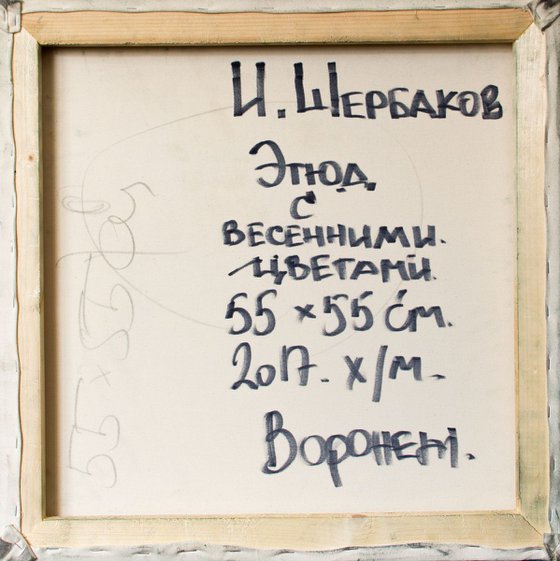 И. Щербаков
Этюд
с
весенними.
цветами.
55 × 55 см.
2017. х/м.
Воронеж.
55 × 55 см